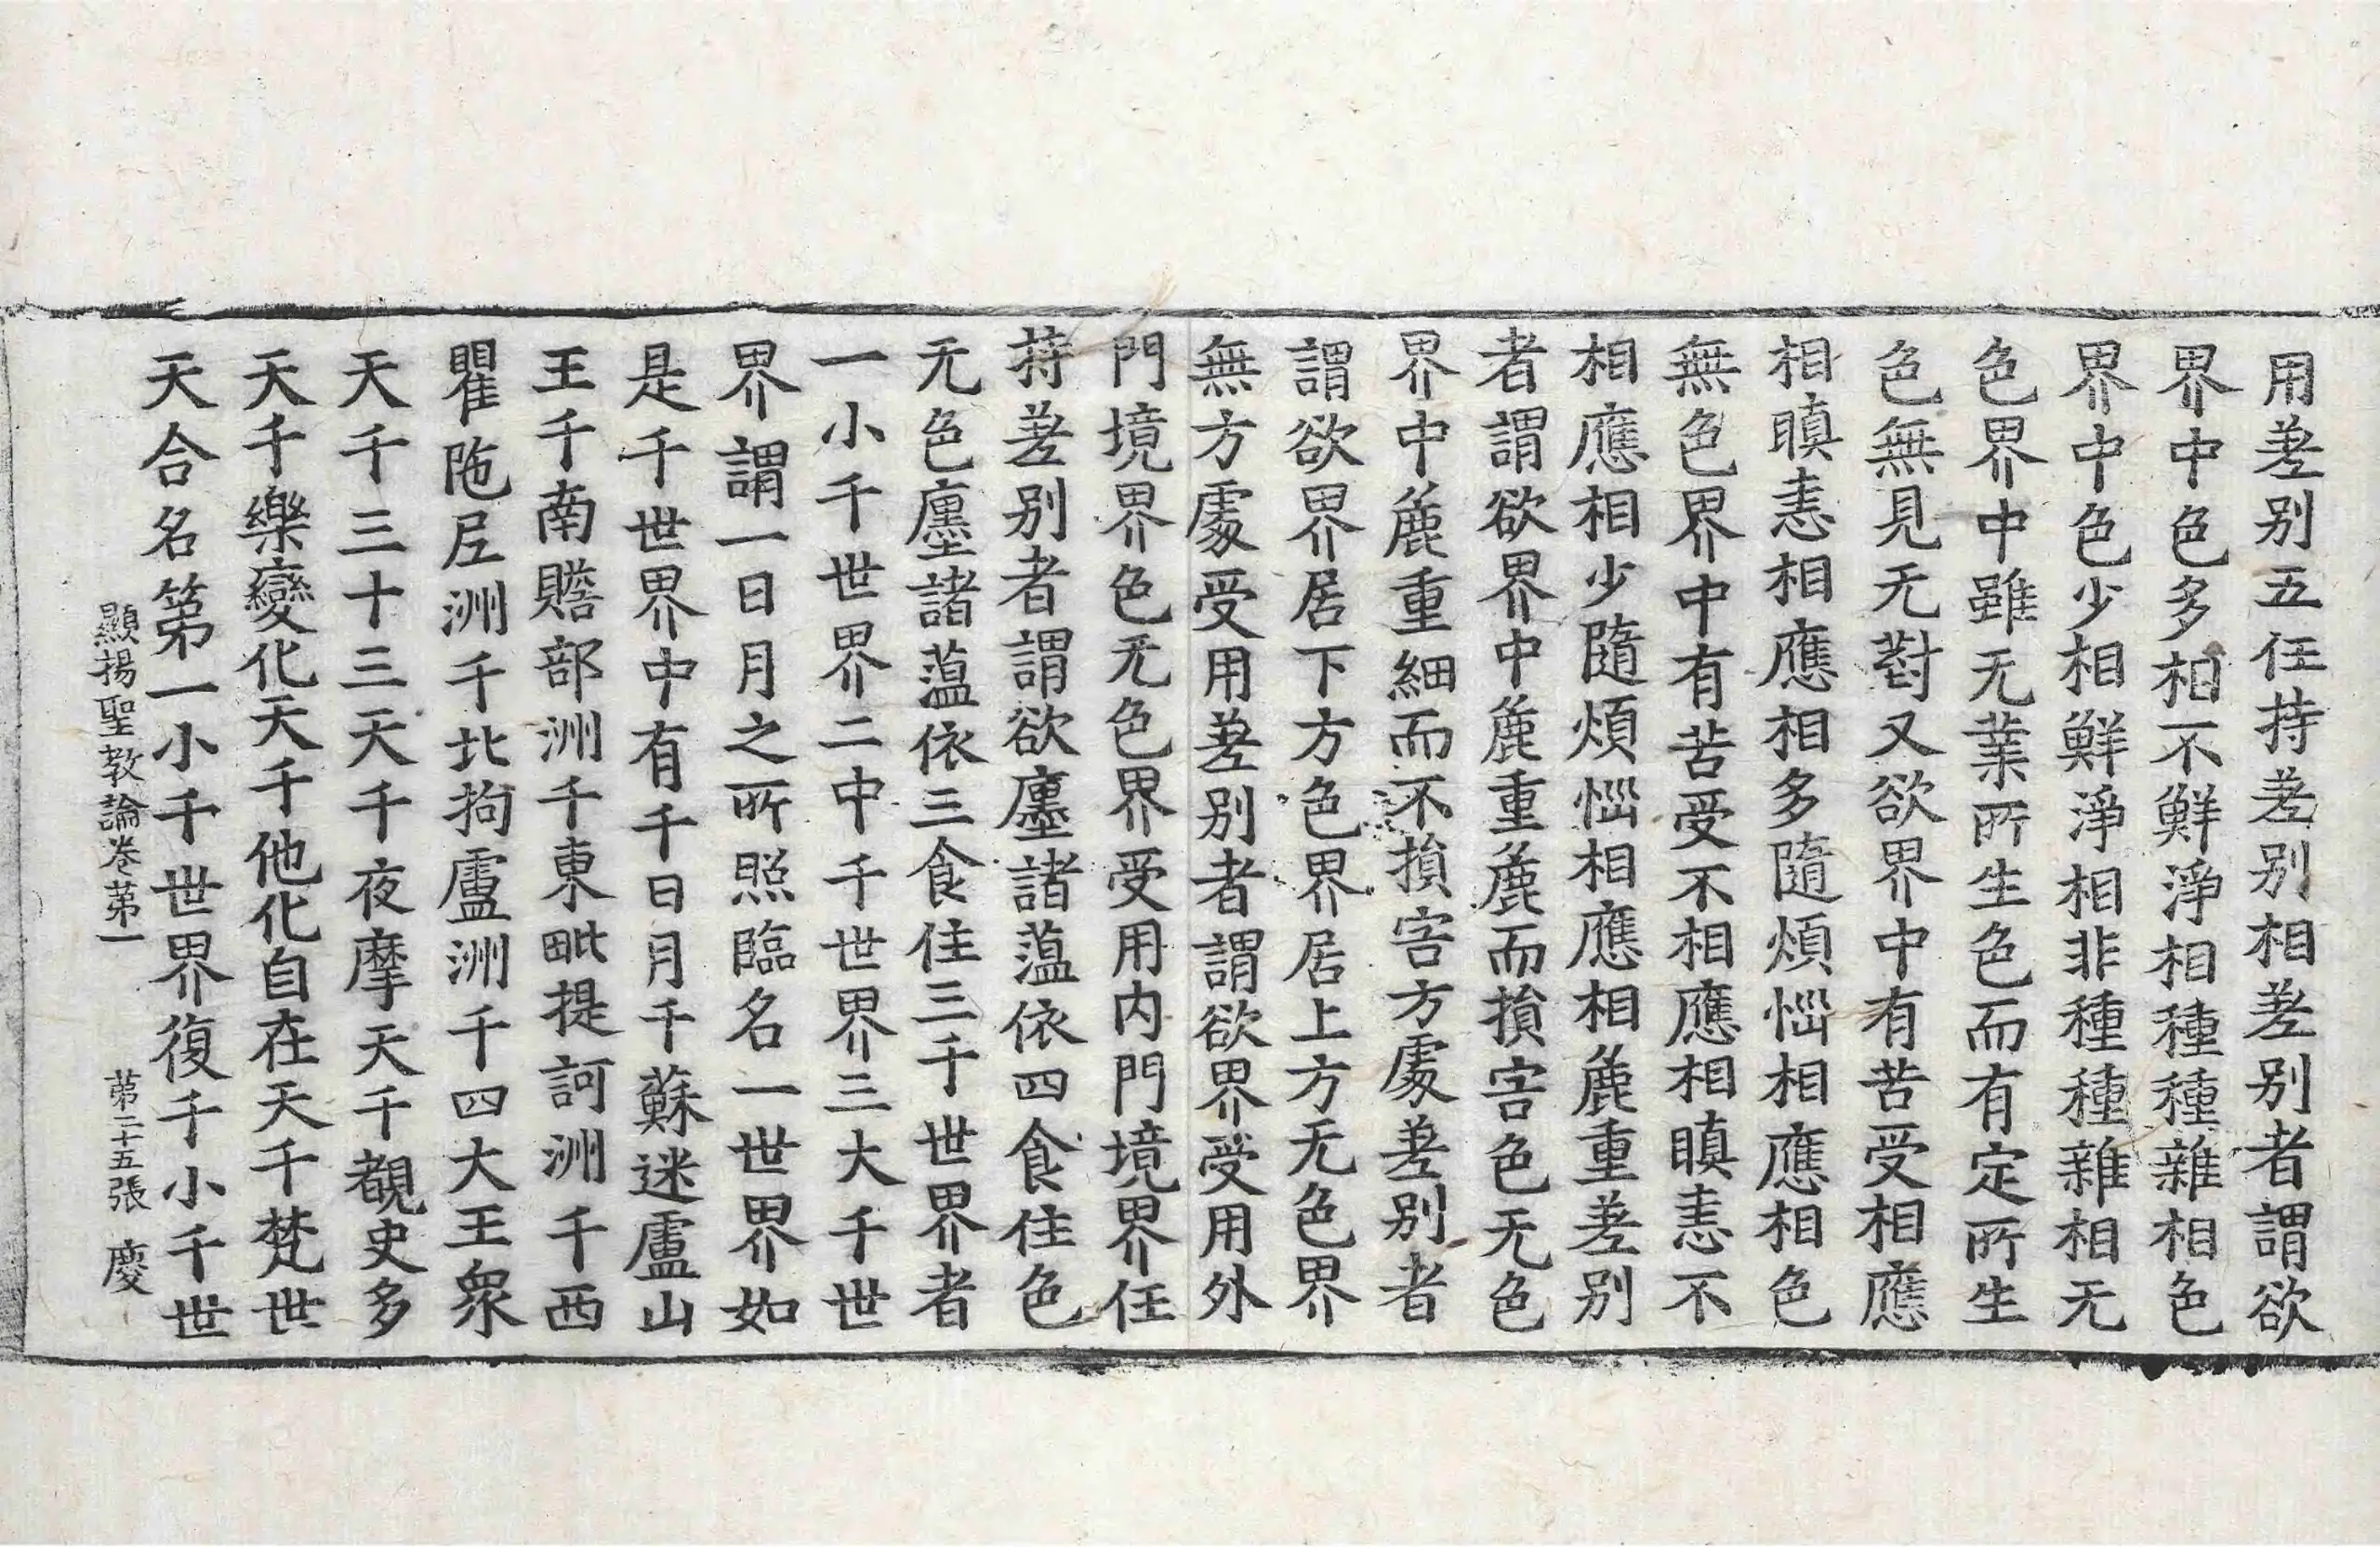 用差別五任持差別相差別者謂欲
界中色多相不鮮淨相種種雜相色
界中色少相鮮淨相非種種雜相无
色界中雖无業所生色而有定所生
色無見无對又欲界中有苦受相應
相瞋恚相應相多隨煩惱相應相色
無色界中有苦受不相應相瞋恚不
相應相少隨煩惱相應相麁重差別
者謂欲界中麁重麁而損害色无色
界中麁重細而不損害方處差別者
謂欲界居下方色界居上方无色界
無方處受用差別者謂欲界受用外
門境界色无色界受用內門境界任
持差別者謂欲廛諸薀依四食住色
无色廛諸薀依三食住三千世界者
一小千世界二中千世界三大千世
界謂一日月之所照臨名一世界如
是千世界中有千日月千蘇迷盧山
王千南贍部洲千東毗提訶洲千西
瞿陁尼洲千北拘盧洲千四大王衆
天千三十三天千夜摩天千覩史多
天千樂變化天千他化自在天千梵世
天合名第一小千世界復千小千世
顯揚聖教論卷苐一 苐二十五張 慶